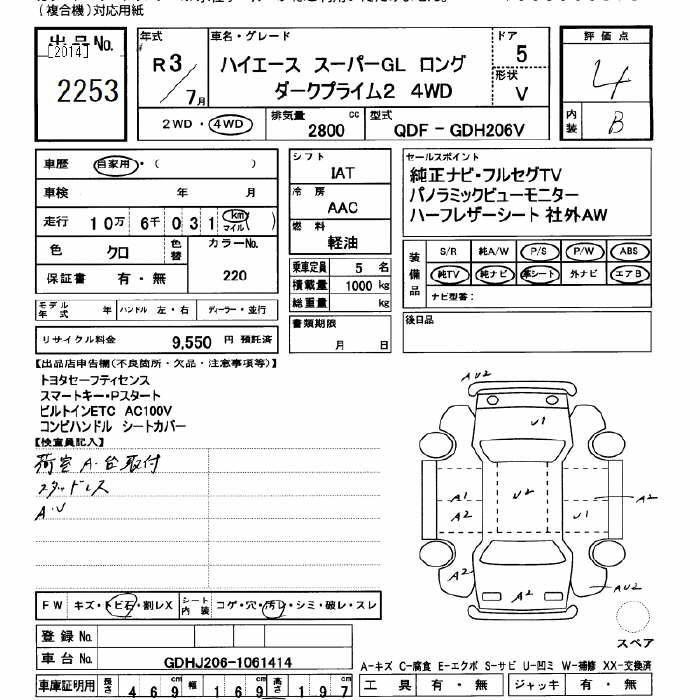 (複合機)対応用紙
出品No.
[2014]
2253
年式
R3/7月
車名・グレード
ハイエース スーパーGL ロング
ダークプライム2 4WD
ドア
5
形状
V
評価点
4
内装
B
2WD・4WD
排気量
2800
cc
型式
QDF-GDH206V
車歴 自家用・( )
車検 年 月
走行 10万 6千 031 km マイル ( )
色 クロ 色替
カラーNo.
220
保証書 有・無
シフト
IAT
冷房
AAC
燃料
軽油
乗車定員 5 名
積載量 1000 kg
総重量 kg
セールスポイント
純正ナビ・フルセグTV
パノラミックビューモニター
ハーフレザーシート 社外AW
装備品
S/R 純A/W P/S P/W ABS
純TV 純ナビ 革シート 外ナビ エアB
ナビ型番:
モデル年式 年 ハンドル 左・右 ディーラー・並行
リサイクル料金 9,550 円 預託済
書類期限
月 日
後日品
【出品店申告欄(不良箇所・欠品・注意事項等)】
トヨタセーフティセンス
スマートキー・Pスタート
ビルトインETC AC100V
コンビハンドル シートカバー
【検査員記入】
荷室 A・台取付
スタッドレス
A・U
AU2
U1
A1
A2
U2
U1
A2
A2
A2
AU2
スペア
FW キズ・トビ石・割レX
シート内装 コゲ・穴・汚レ・シミ・破レ・スレ
登録No.
車台No. GDHJ206-1061414
A-キズ C-腐食 E-エクボ S-サビ U-凹ミ W-補修 XX-交換済
車庫証明用 長さ 469 cm 幅 169 cm 高さ 197 cm
工具 有・無 ジャッキ 有・無